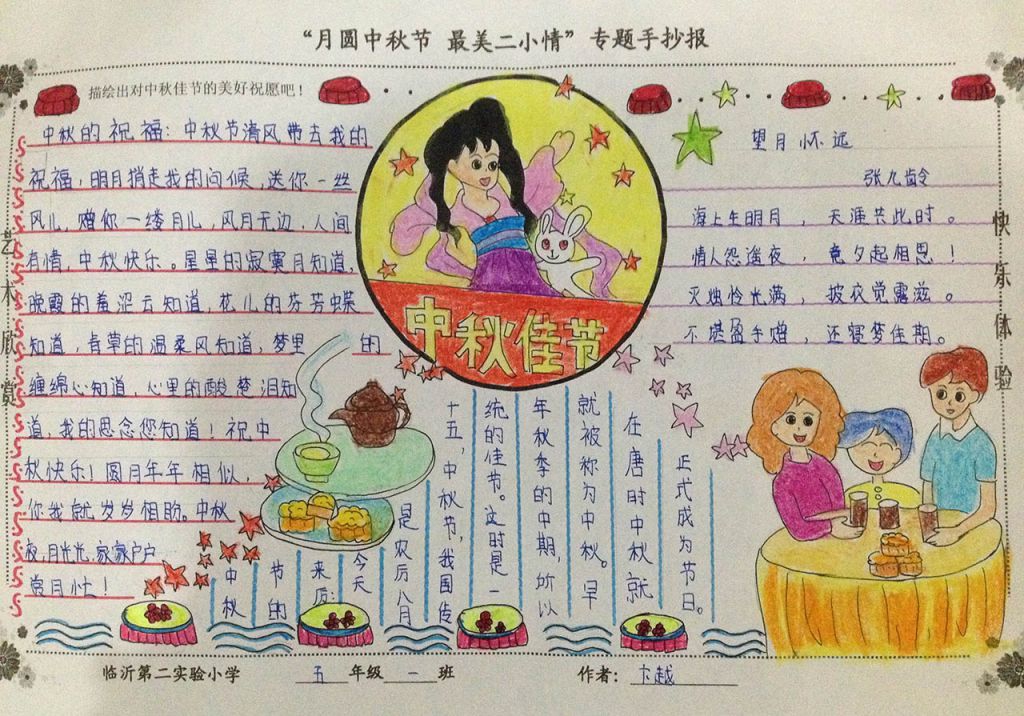 “月圆中秋节 最美二小情”专题手抄报
描绘出对中秋佳节的美好祝愿吧！
中秋的祝福：中秋节清风带去我的
祝福，明月捎走我的问候，送你一丝
风儿，赠你一缕月儿，风月无边，人间
有情，中秋快乐。星星的寂寞月知道，
晚霞的羞涩云知道，花儿的芬芳蝶
知道，青草的温柔风知道，梦里 的
缠绵心知道，心里的酸楚泪知
道，我的思念您知道！祝中
秋快乐！圆月年年相似，
你我就岁岁相盼。中秋
夜，月光光，家家户户
赏月忙！
艺术欣赏
中秋佳节
望月怀远
张九龄
海上生明月，天涯共此时。
情人怨遥夜，竟夕起相思！
灭烛怜光满，披衣觉露滋。
不堪盈手赠，还寝梦佳期。
快乐体验
中秋
节的
来历：
今天
是农历八月
十五，中秋节，我国传
统的佳节。这时是一
年秋季的中期，所以
就被称为中秋。早
在唐时中秋就
正式成为节日。
临沂第二实验小学 五年级一班 作者：卞越